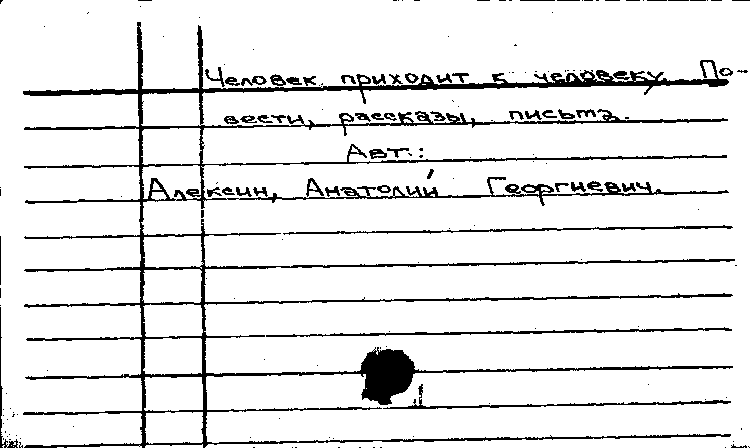 Человек приходит к человеку. По-
вести, рассказы, письма.
Авт.:
Алексин, Анатолий Георгиевич.